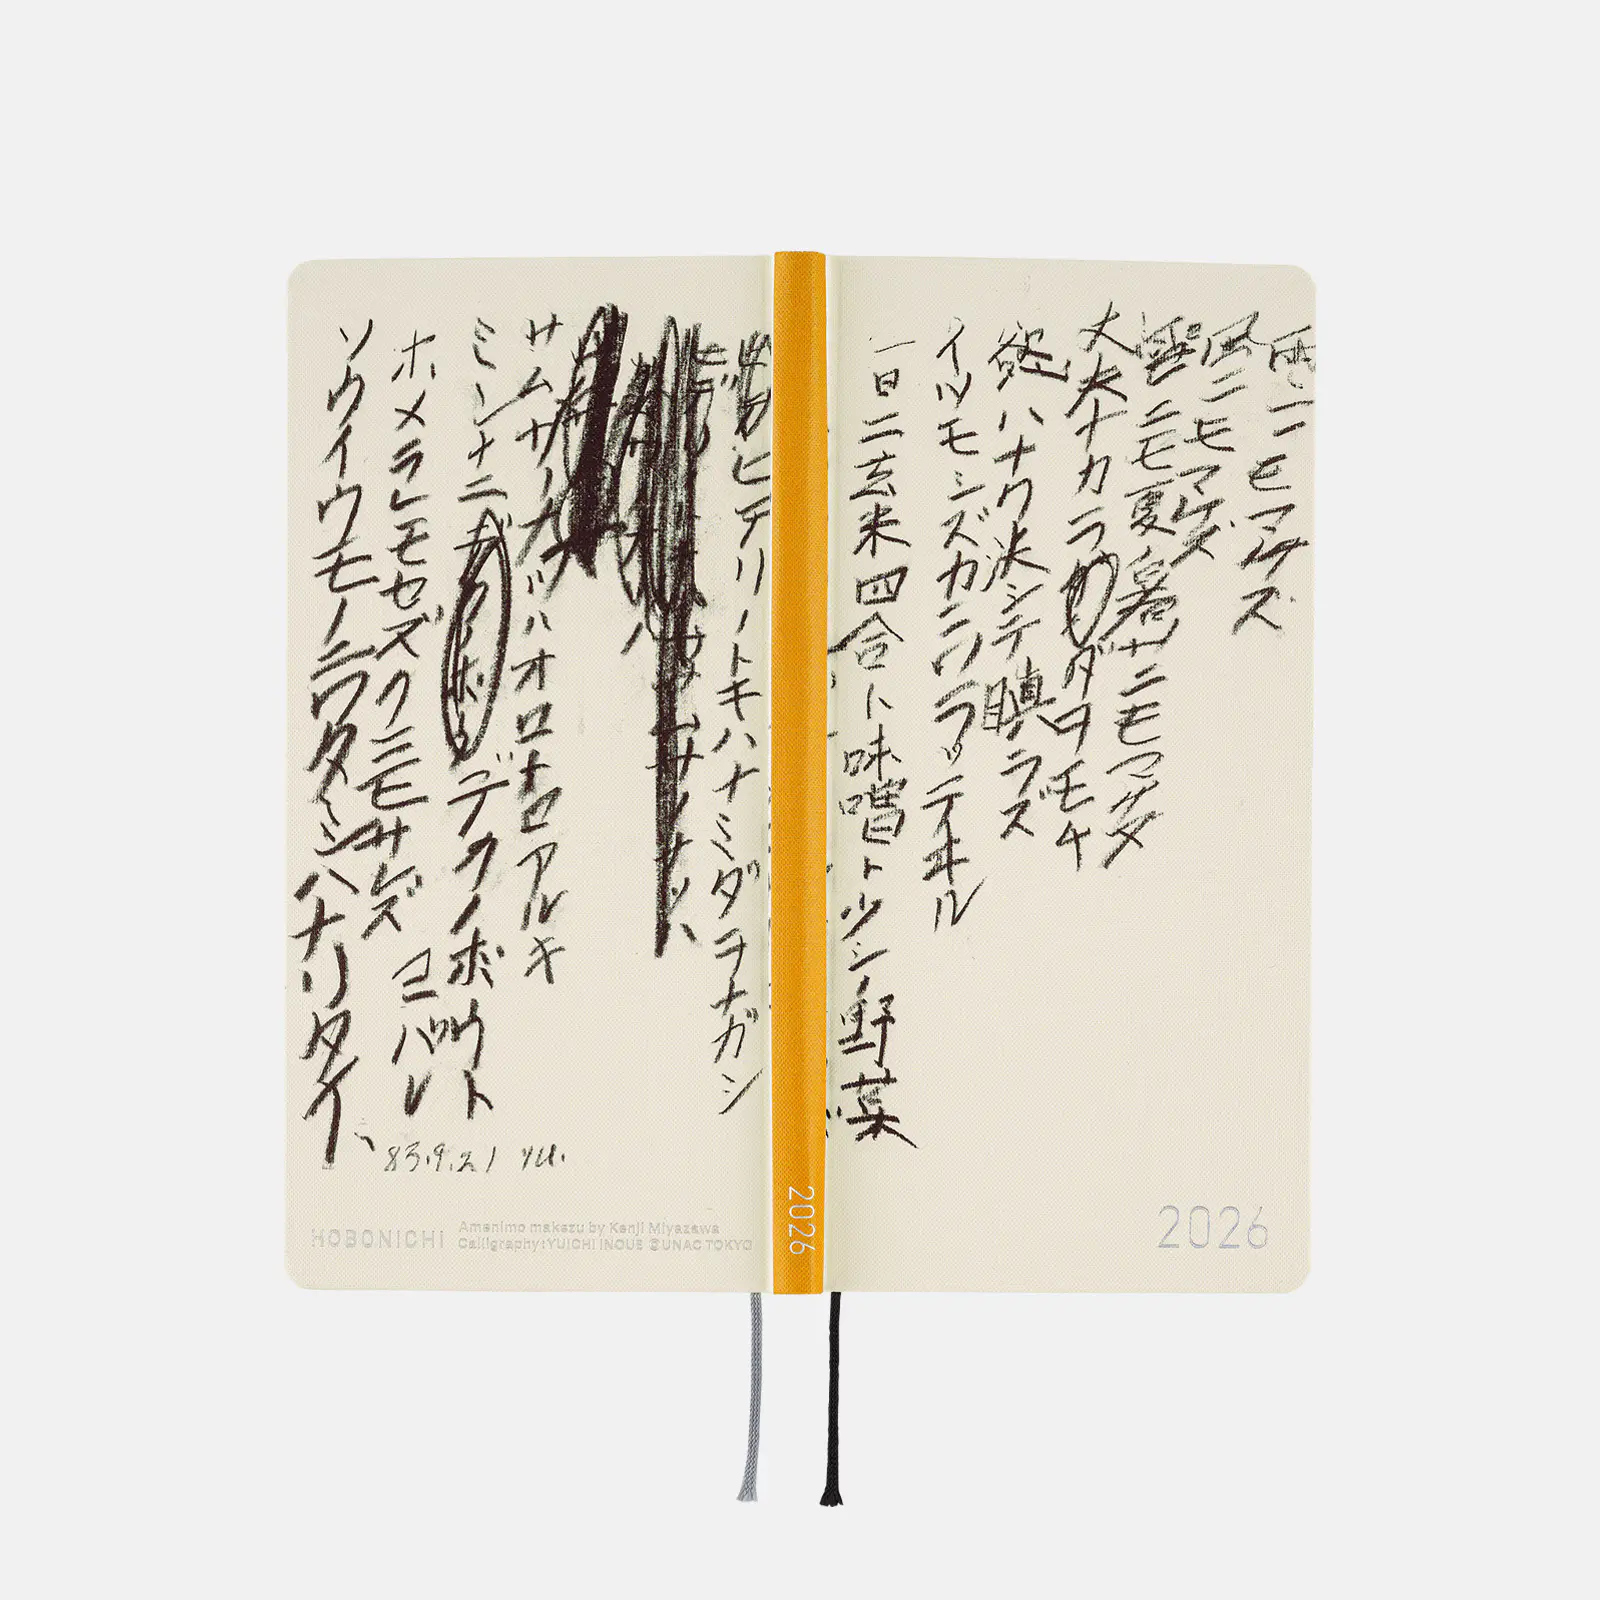 雨ニモマケズ
風ニモマケズ
雪ニモ夏ノ暑サニモマケヌ
丈夫ナカラダヲモチ
慾ハナク決シテ瞋ラズ
イツモシヅカニワラッテヰル
一日ニ玄米四合ト味噌ト少シノ野菜
ヒデリノトキハナミダヲナガシ
サムサノナツハオロオロアルキ
ミンナニデクノボウト
ホメラレモセズクニモサレズ
ヨバレ
ソウイウモノニワタシハナリタイ
83.9.21 yu.
2026
2026
HOBONICHI
Amenimo makezu by Kenji Miyazawa
Calligraphy:YUICHI INOUE ©UNAC TOKYO